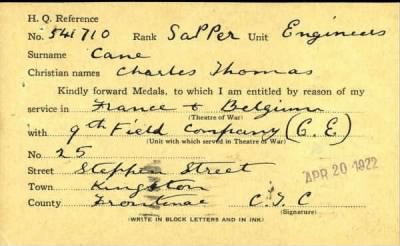 H. Q. Reference
No. 541710 Rank Sapper Unit Engineers
Surname Cane
Christian names Charles Thomas
Kindly forward Medals, to which I am entitled by reason of my
service in France & Belgium
(Theatre of War)
with 9th Field Company (C.E)
(Unit with which served in Theatre of War)
No. 25
Street Stephen Street
Town Kingston
APR 20 1922
County Frontinac C.T.C
(Signature)
(WRITE IN BLOCK LETTERS AND IN INK)